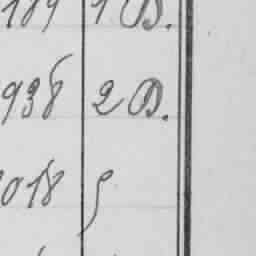 189 1 D.
938 2 D.
018